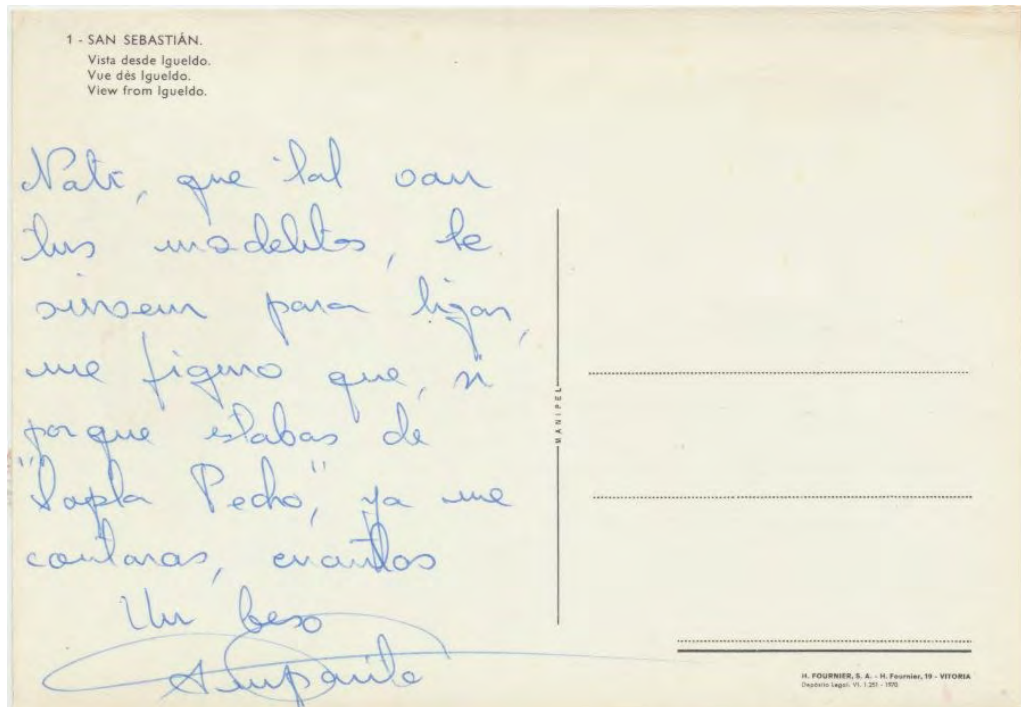 1 - SAN SEBASTIÁN.
Vista desde Igueldo.
Vue dès Igueldo.
View from Igueldo.
Nati, que tal van
tus modelitos, te
sirven para ligar,
me figuro que, si
porque estabas de
"Sopla Pecho", ya me
contaras, cuantos
Un beso
Amparito
MANIPEL
H. FOURNIER, S. A. - H. Fournier, 19 - VITORIA
Depósito Legal. VI. 1 251 - 1970